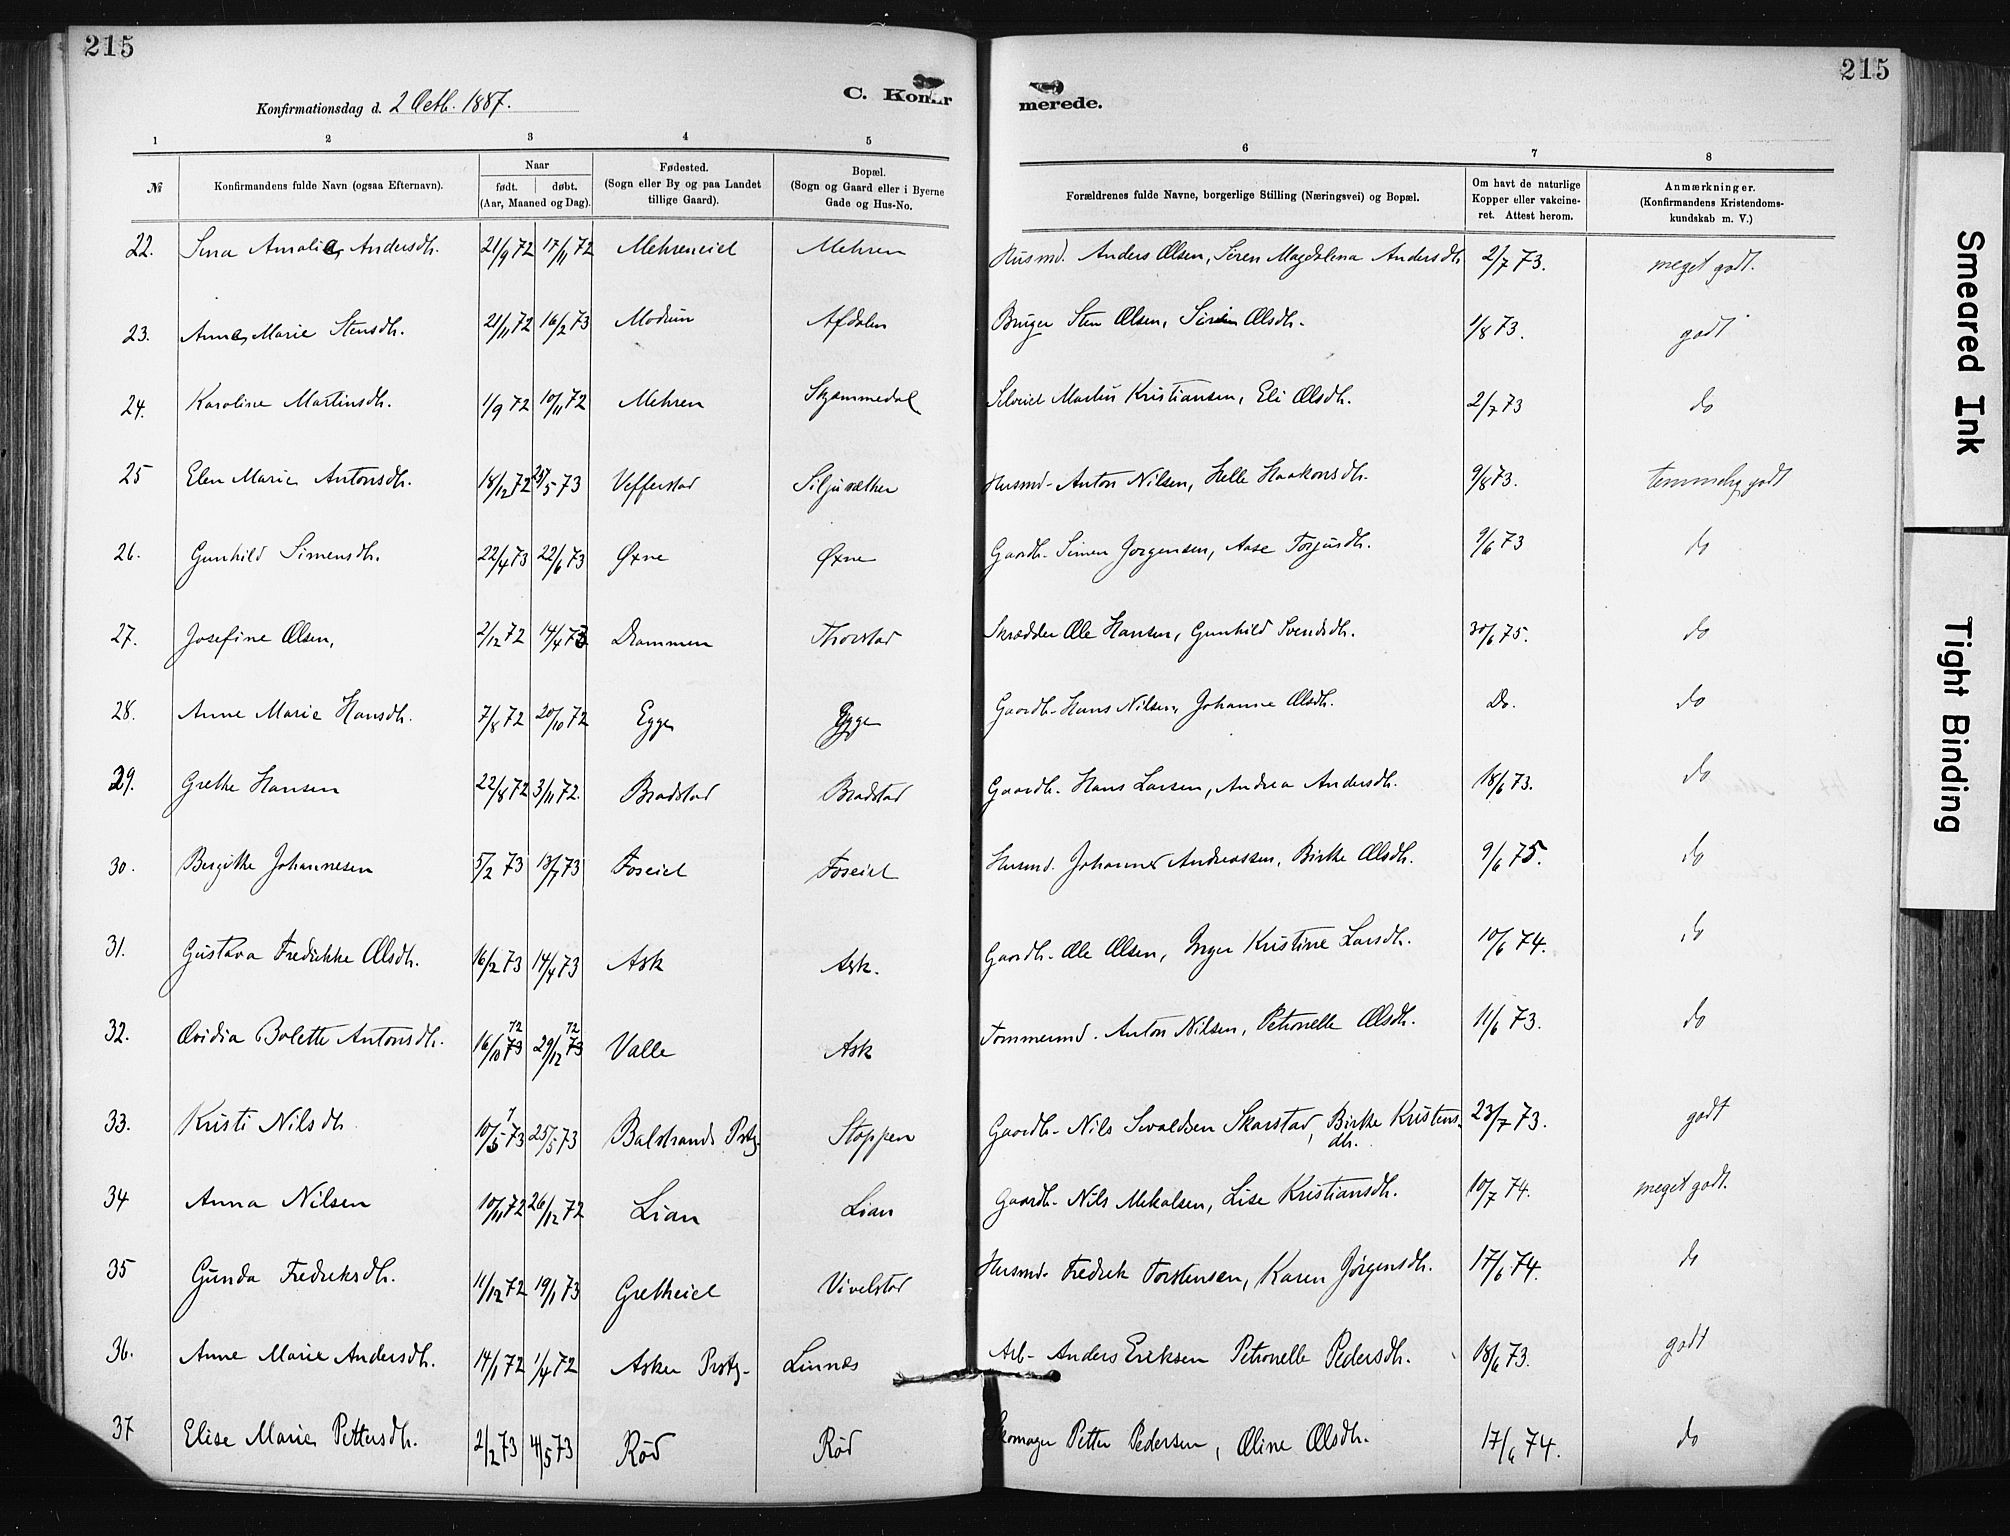 215
215
Konfirmationsdag d. 2 Octb. 1887.
C. Konfir merede.
1 2 3 4 5 6 7 8
№
Konfirmandens fulde Navn (ogsaa Efternavn).
Naar
født. døbt.
(Aar, Maaned og Dag).
Fødested.
(Sogn eller By og paa Landet
tillige Gaard).
Bopæl.
(Sogn og Gaard eller i Byerne
Gade og Hus-No.
Forældrenes fulde Navne, borgerlige Stilling (Næringsvei) og Bopæl.
Om havt de naturlige
Kopper eller vakcine-
ret. Attest herom.
Anmærkninger.
(Konfirmandens Kristendoms-
kundskab m. V.)
22. Sina Amalie Andersdh. 21/9 72 17/11 72 Mehreneiet Mehren Husmd. Anders Olsen, Siren Magdalena Andersdh 2/7 73. meget godt.
23. Anne Marie Stensdh. 21/11 72 16/2 73 Modum Afdalen Bruger Sten Olsen, Siren Olsdh. 1/8 73. godt
24. Karoline Martinsdh. 1/9 72 10/11 72 Mehren Skjæmmedal Selveier Martin Kristiansen, Eli Olsdh. 2/7 73 do
25 Elen Marie Antonsdh. 18/12 72 25/5 73 Vefferstad Siljusæther Husmd. Anton Nilsen, Helle Haakonsdh. 9/8 73. temmelig godt
26. Gunhild Simensdh. 22/4 73 22/6 73 Øxne Øxne Gaardb. Simen Jorgensen, Aase Torjusdh. 9/6 73 do
27. Josefine Olsen, 2/12 72 14/4 73 Drammen Thorstad Skrædder Ole Hansen, Gunhild Svendsdh. 30/6 75. do
28. Anne Marie Hansdh. 7/8 72 20/10 72 Egge Egge Gaardb. Hans Nilsen, Johanne Olsdh. Do. do
29. Grethe Hansen 22/8 72 3/11 72. Bradstad Bradstad Gaardb. Hans Larsen, Andrea Andersdh. 18/6 73. do
30. Bergithe Johannesen 5/2 73 13/7 73 Foseiet Foseiet Husmd. Johannes Andreassen, Birthe Olsdh. 9/6 75. do
31. Gustava Fredrikke Olsdh. 16/2 73 14/4 73 Ask Ask. Gaardb. Ole Olsen, Inger Kristine Larsdh. 10/6 74. do
32. Ovidia Bolette Antonsdh. 16/10 73 72 29/12 73 72 Valle Ask Tømmermd. Anton Nilsen, Petronelle Olsdh. 11/6 73. do
33. Kristi Nilsdh 10/5 73 25/5 73 Balstrands Prstg. Stoppen Gaardb. Nils Sivaldsen Skarstad, Birthe Kristens-
dh. 23/7 73. godt
34 Anna Nilsen 10/11 72 26/12 72 Lian Lian Gaardb. Nils Mikalsen, Lise Kristiansdh. 10/7 74. meget godt.
35 Gunda Fredriksdh. 11/12 72 19/1 73 Gretheiet Vivelstad Husmd. Fredrik Torstensen, Karen Jørgensdh. 17/6 74. do
36. Anne Marie Andersdh. 14/1 72 1/4 72 Asker Prstg. Linnes Arb. Anders Eriksen Petronelle Pedersdh. 18/6 73. godt
37 Elise Marie Pettersdh. 2/2 73 4/5 73 Rød Rød Skomager Petter Pedersen, Oline Olsdh. 17/6 74. do
Smeared Ink
Tight Binding